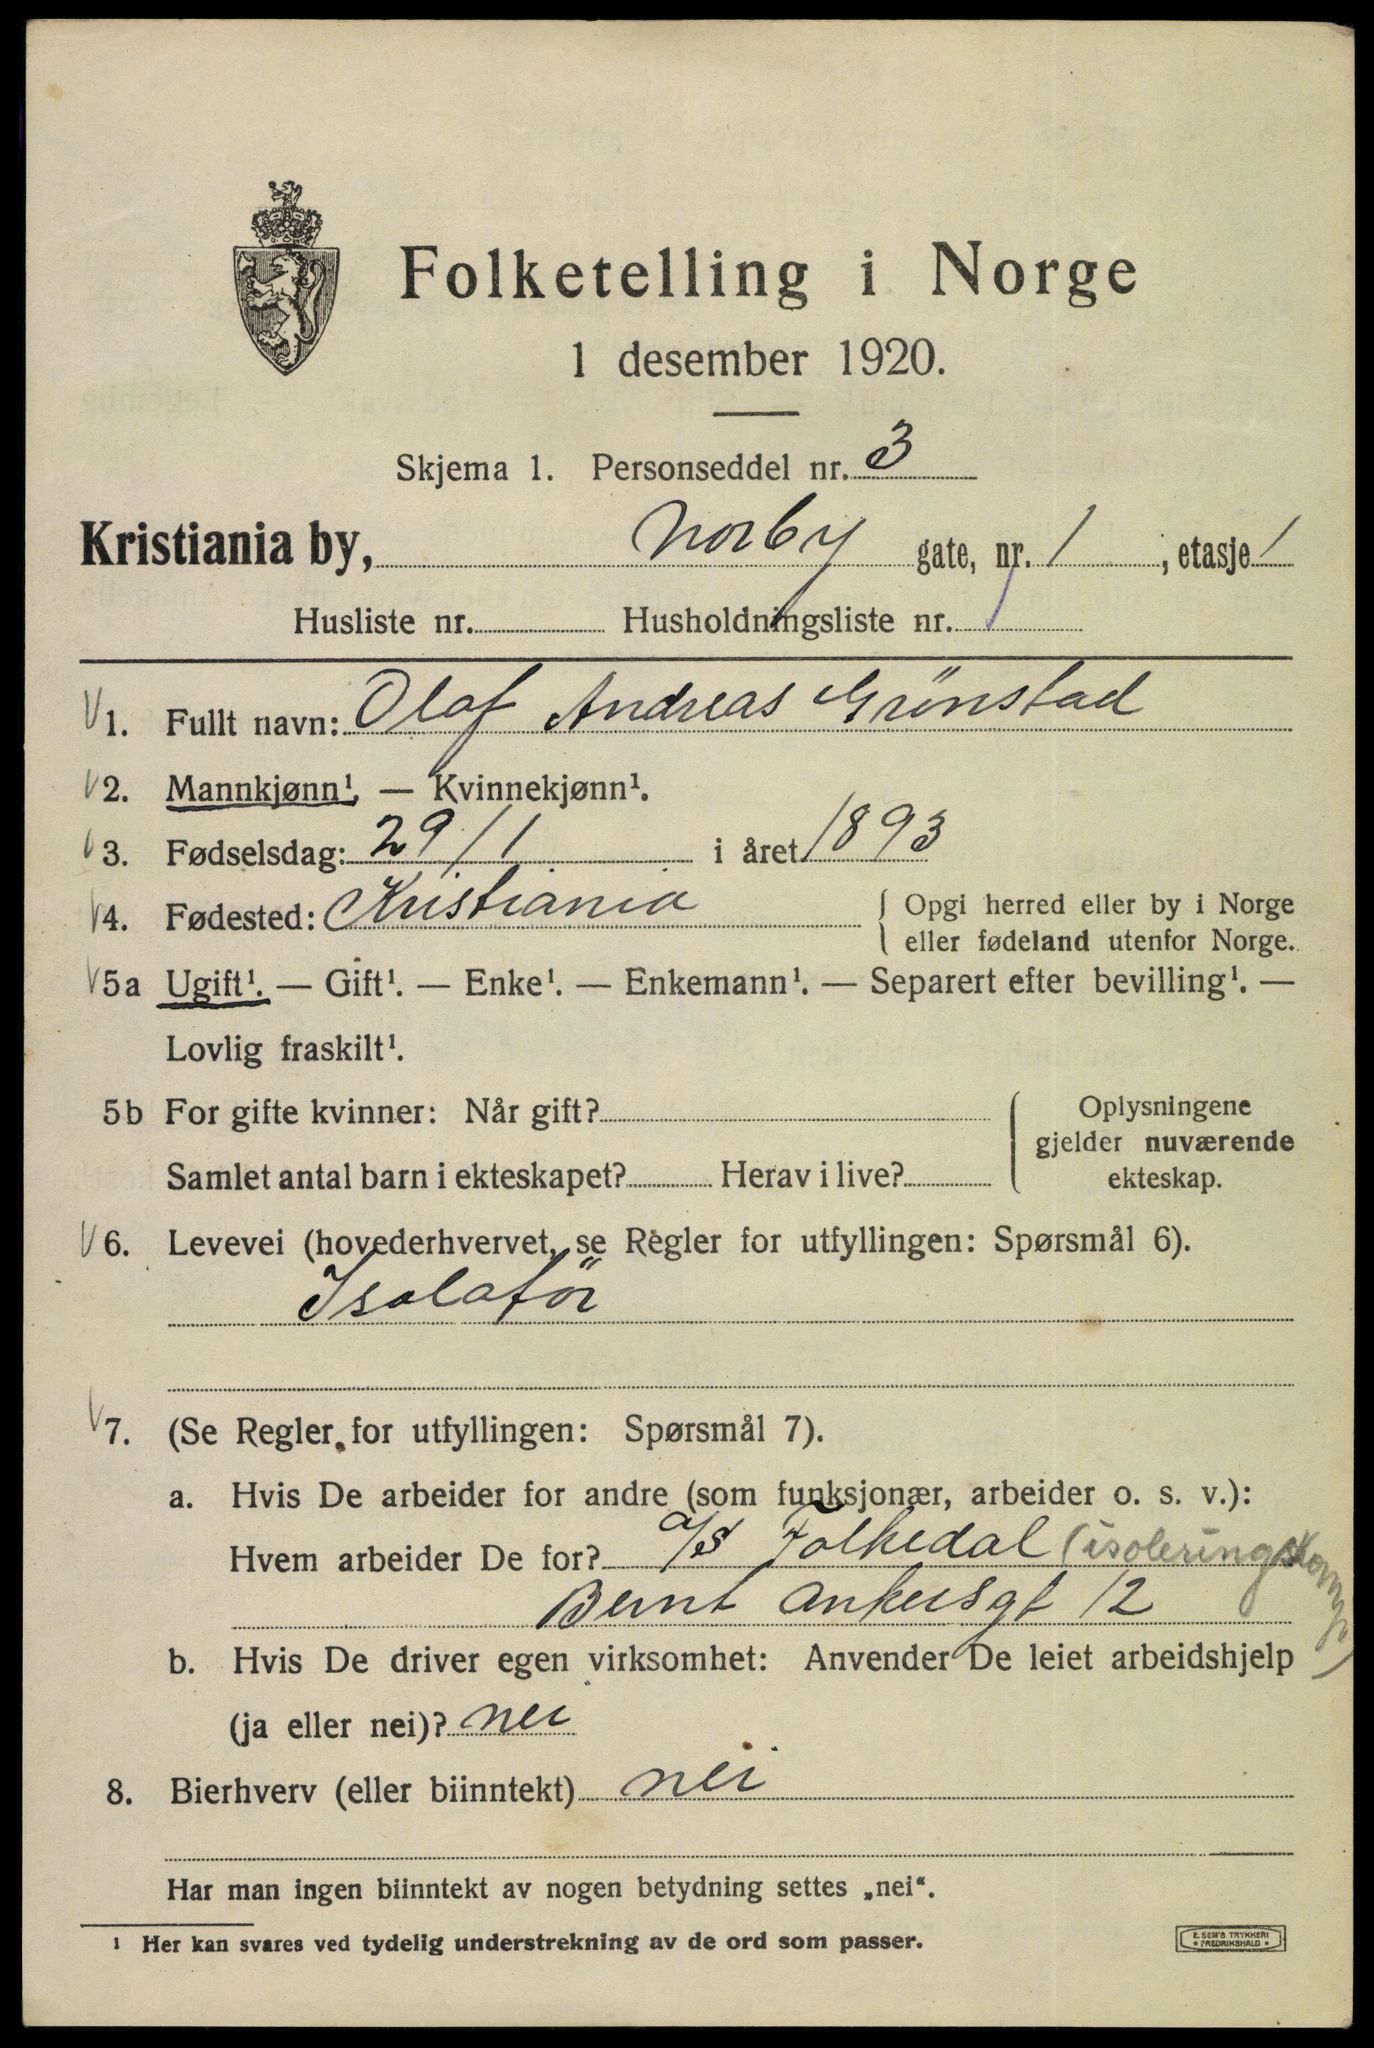 Folketelling i Norge
1 desember 1920.
Skjema 1. Personseddel nr. 3
Kristiania by, Norby gate, nr. 1, etasje 1
Husliste nr. Husholdningsliste nr. 1
V 1. Fullt navn: Olaf Andreas Grönstad
V 2. Mannkjønn¹. — Kvinnekjønn¹.
V 3. Fødselsdag: 29/1 i året 1893
V 4. Fødested: Kristiania { Opgi herred eller by i Norge
eller fødeland utenfor Norge.
V 5a Ugift¹. — Gift¹. — Enke¹. — Enkemann¹. — Separert efter bevilling¹. —
Lovlig fraskilt¹.
5b For gifte kvinner: Når gift? { Oplysningene
gjelder nuværende
Samlet antal barn i ekteskapet? Herav i live? ekteskap.
V 6. Levevei (hovederhvervet, se Regler for utfyllingen: Spørsmål 6).
Isolatör
V 7. (Se Regler for utfyllingen: Spørsmål 7).
a. Hvis De arbeider for andre (som funksjonær, arbeider o. s. v.):
Hvem arbeider De for? a/s Folkedal (isoleringskomp)
Bernt Ankersgt 12
b. Hvis De driver egen virksomhet: Anvender De leiet arbeidshjelp
(ja eller nei)? nei
8. Bierhverv (eller biinntekt) nei
Har man ingen biinntekt av nogen betydning settes „nei“.
¹ Her kan svares ved tydelig understrekning av de ord som passer.
E. SEM'S TRYKKERI
• FREDRIKSHALD •